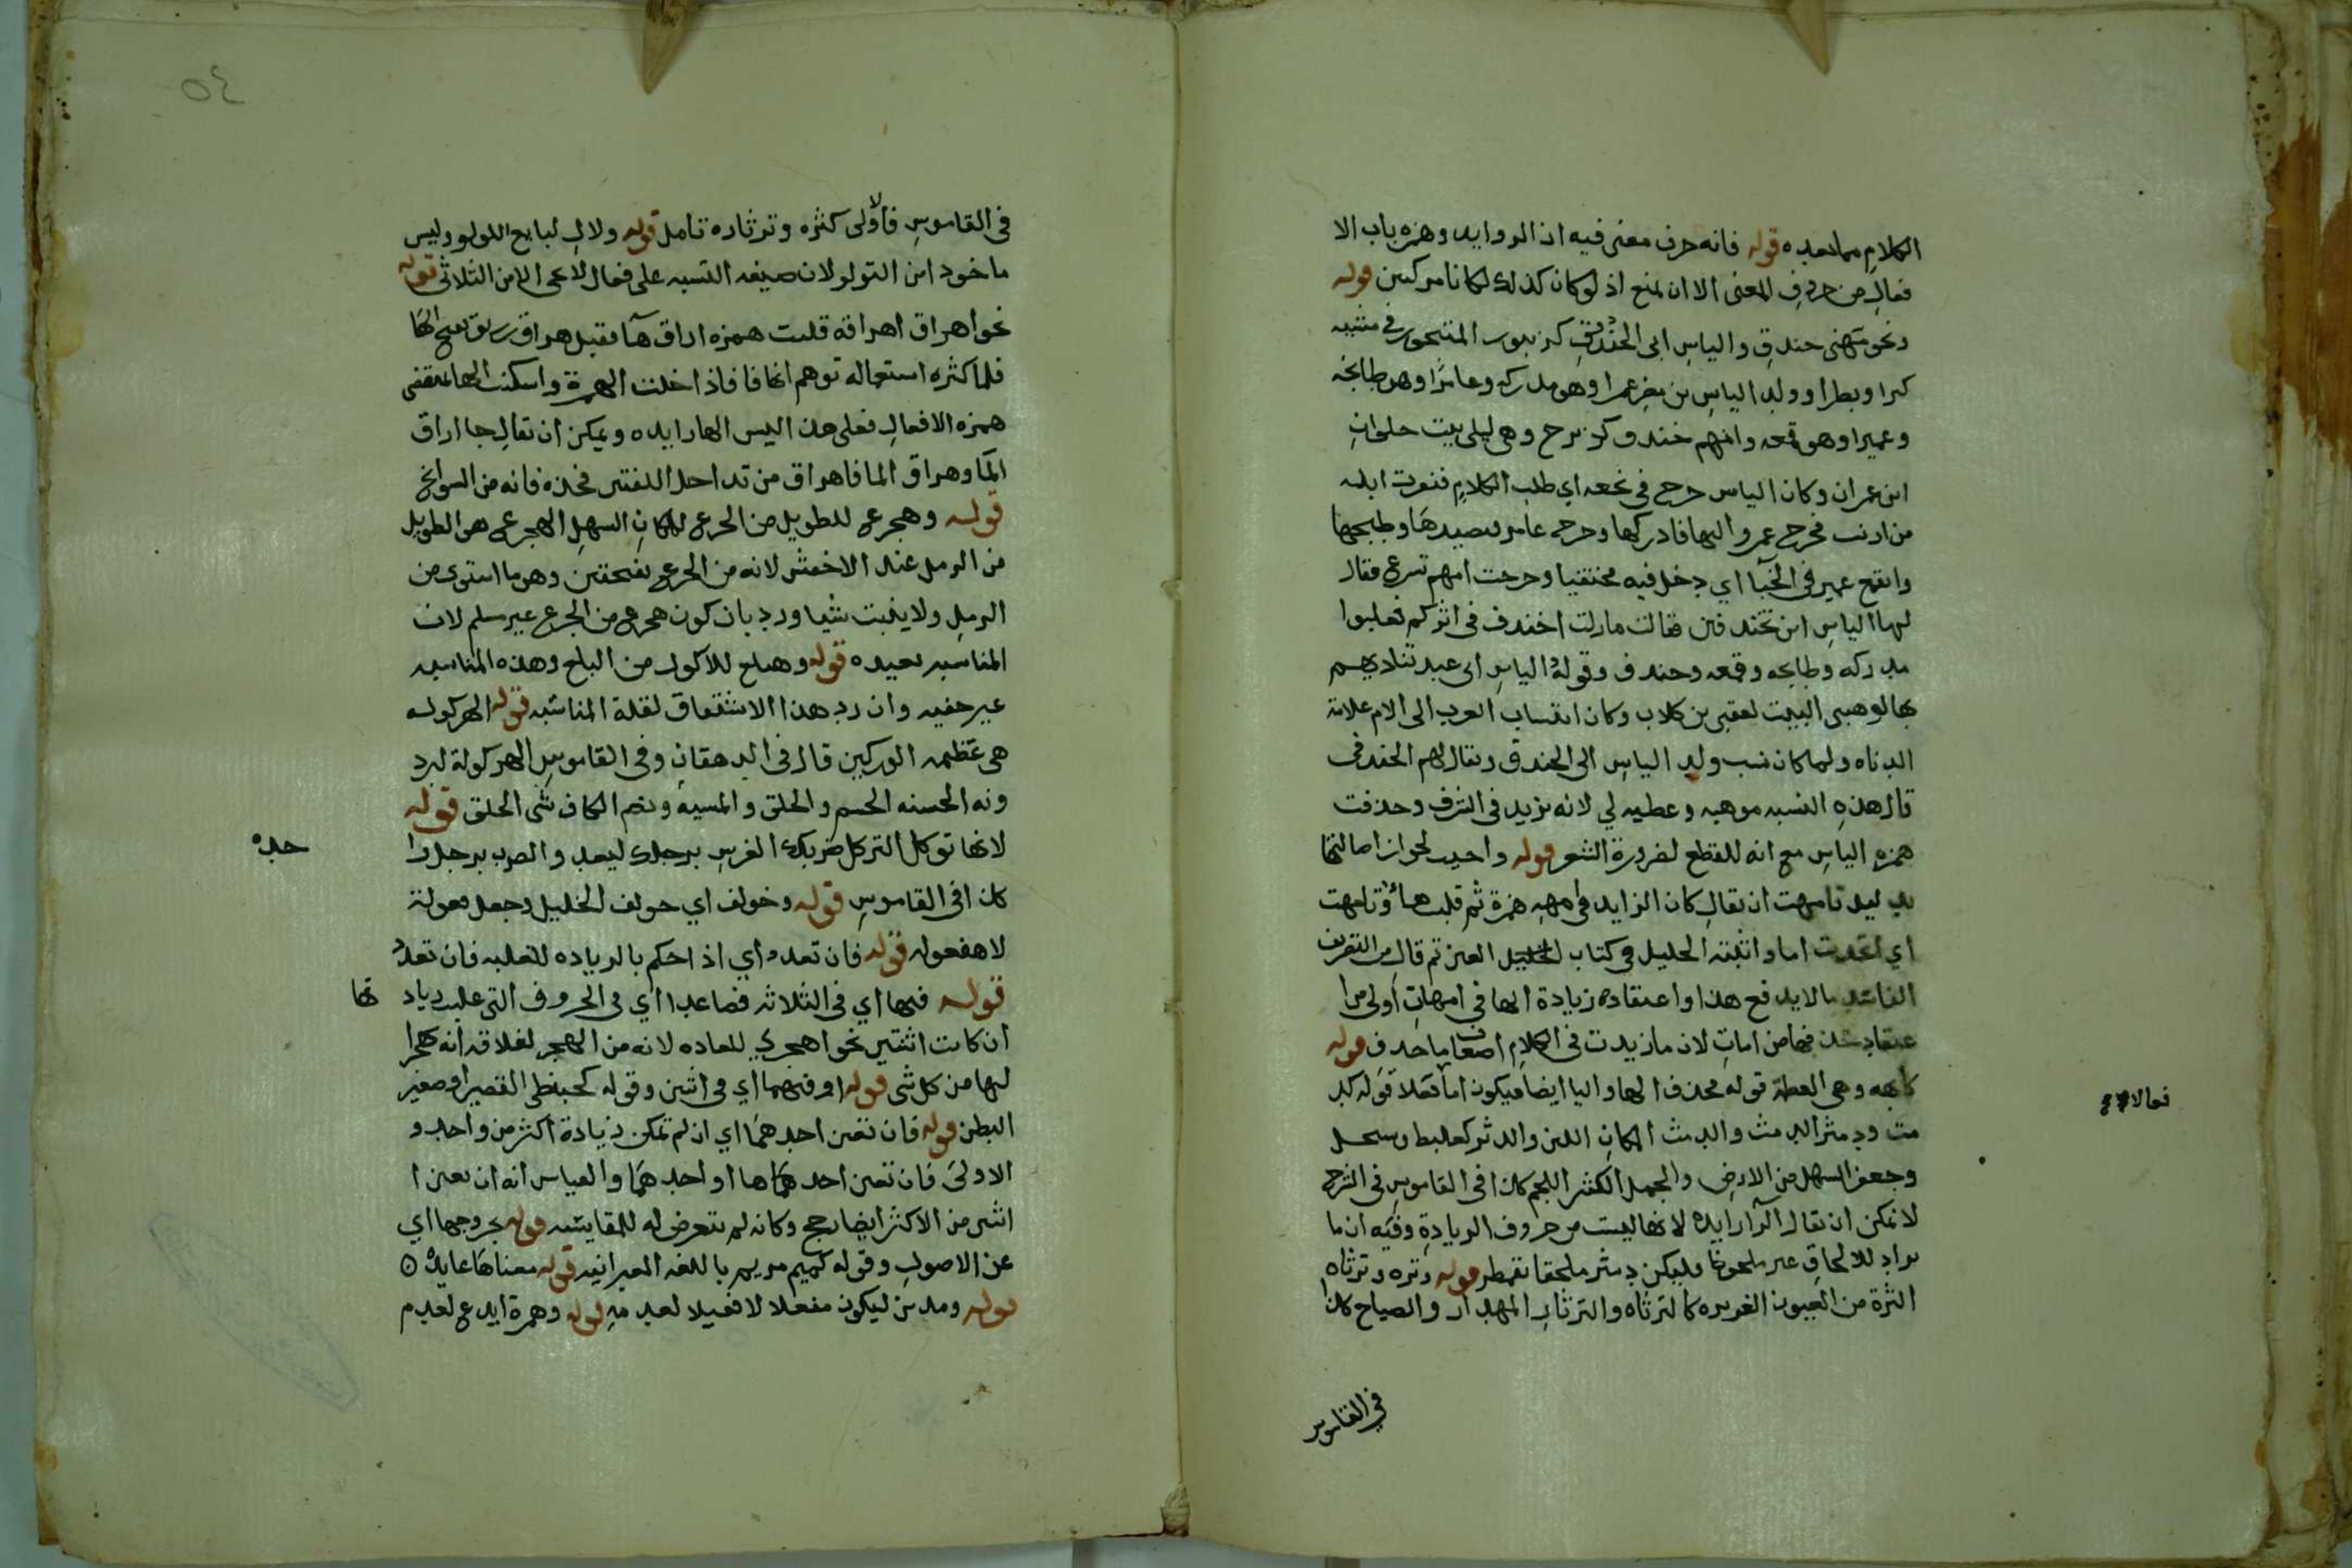 الكلام مما بعده قوله فانه حرف معنى فيه اذ الزوايد وهمزه باب الا
فعال من حروف المعنى الا ان يمنع اذ لو كان كذلك لكانا مركبين قوله
ونحو حندق والياس ابى الخندف كزبور المتبختر في مشيه
كبرا وبطرا وولد الياس بن مضر عمرا وهو مدركه وعامرا وهو طابخه
وعميرا وهو قمعه وامهم خندف كزبرج وهى ليلى بنت حلوان
ابن عمران وكان الياس خرج فى نجعه اي طلب الكلام فنفرت ابله
من ارنب فخرج عمرو اليها فادركها وخرج عامر فصيدها وطبخها
وانقمع عمير فى الخبآ اي دخل فيه مختفيا وخرجت امهم تسرع فقال
لها الياس اين تخندفين فقالت مازلت اخندف فى اثركم فلعبوا
مدركه وطابخه وقمعه وخندف وقوله الياس ابى عبد تناديهم
بهال وهبى البيت لقصى بن كلاب وكان انتساب العرب الى الام علامة
الدناه ولما كان نسب ولد الياس الى الخندق ويقال لهم الخندفى
قال هذه النسبه موهبه وعطيه لي لانه يزيد فى الشرف وحذفت
همزه الياس مع انه للقطع لضرورة الشعر قوله واجيب لجواز اصالتها
بدليل تامهت ان يقال كان الزايد فى امهه همزة ثم قلبت هاؤ وتامهت
اي اتخذت اما واثبته الخليل فى كتاب العين ثم قال من التصريف
الفاسد مالا يدفع هذا واعتقاده زيادة الها فى امهات اولى من ا
عتقاد حذفها من امات لان ما زيدت فى الكلام اضعاف ما حذف قوله
كابهه وهى العظمة قوله محذف الها واليا ايضا فيكون اما فعلا قوله كد
مث ودمثر الدمث والدمث المكان اللين والدثر كعلبط وسبحل
وجعفر السهل من الارض والجمل الكثير اللحم كذا فى القاموس فى الشرح
لا يمكن ان يقال الرآ زايده لانها ليست من حروف الزيادة وفيه ان ما
يراد للالحاق غير ملحوظا فليكن دمثر ملحقا بقمطر قوله وثره وثرثاره
الثرة من العيون الغزيره كالثرثاره والثرثار المهذار والصياح كذا
فعالا
فى القاموس
٥٤
فى القاموس فالاولى كثره وثرثاره تامل قوله ولال لبايع اللولو وليس
ماخودا من اللولو لان صيغه النسبه على فعال لا يجى الا من الثلاثى قوله
نحو اهراق اهراقه قلبت همزه اراق هآ فقيل هراق يهريق بفتح الها
فلما كثره استعماله توهم انها فا فادخلت الهمزة واسكنت الها لتقضى
همزه الافعال فعلى هذا ليس الها زايده ويمكن ان يقال جا اراق
المآ وهراق الما فاهراق من تداخل اللغتين فخذه فانه من السوانح
قوله وهجرع للطويل من الجرع للمكان السهل الهجرع هو الطويل
من الرمل عند الاخفش لانه من الجرع بفتحتين وهو ما استوى من
الرمل ولا ينبت شيا ورد بان كون هجرع من الجرع غير مسلم لان
المناسبه بعيده قوله وهبلع للاكول من البلع وهذه المناسبه
غير خفيه وان رد هذا الاشتقاق لقلة المناسبه قوله الهركوله
هى عظيمه الوركين قال فى الدهقان وفى القاموس الهركولة لبرد
ونه الحسنه الجسم والخلق والمشية وبضم الكاف شى الخلق قوله
لانها تركل الركل ضربك الفرس برجلك ليعد والضرب برجل وا
حده
كذا فى القاموس قوله وخولف اي خولف الخليل وجعل فعولة
لا هفعوله قوله فان تعدد اي اذا حكم بالزياده للغلبه فان تعدد
قوله فيها اي فى الثلاثه فصاعدا اي فى الحروف التى غلبت زياد تها
ان كانت اثنتين نحو اهجيرى للعاده لانه من الهجر لعلاقه انه هجرا
لها من كل شى قوله او فيهما اي فى اثنين وقوله كحبنطى القصير او صغير
البطن قوله فان تعين احدهما اي ان لم تمكن زيادة اكثر من واحد و
الاولى فان تعين احدهما او احدهما والقياس انه ان تعين ا
اثنين من الاكثر ايضا رجح وكانه لم يتعرض له للمقايسه قوله بخروجها اي
عن الاصول وقوله كميم مريم باللغه العبرانيه قوله معناها عابده ٥
قوله ومدين ليكون مفعلا لا فعيلا لعدمه قوله وهمزة ايدع لعدم